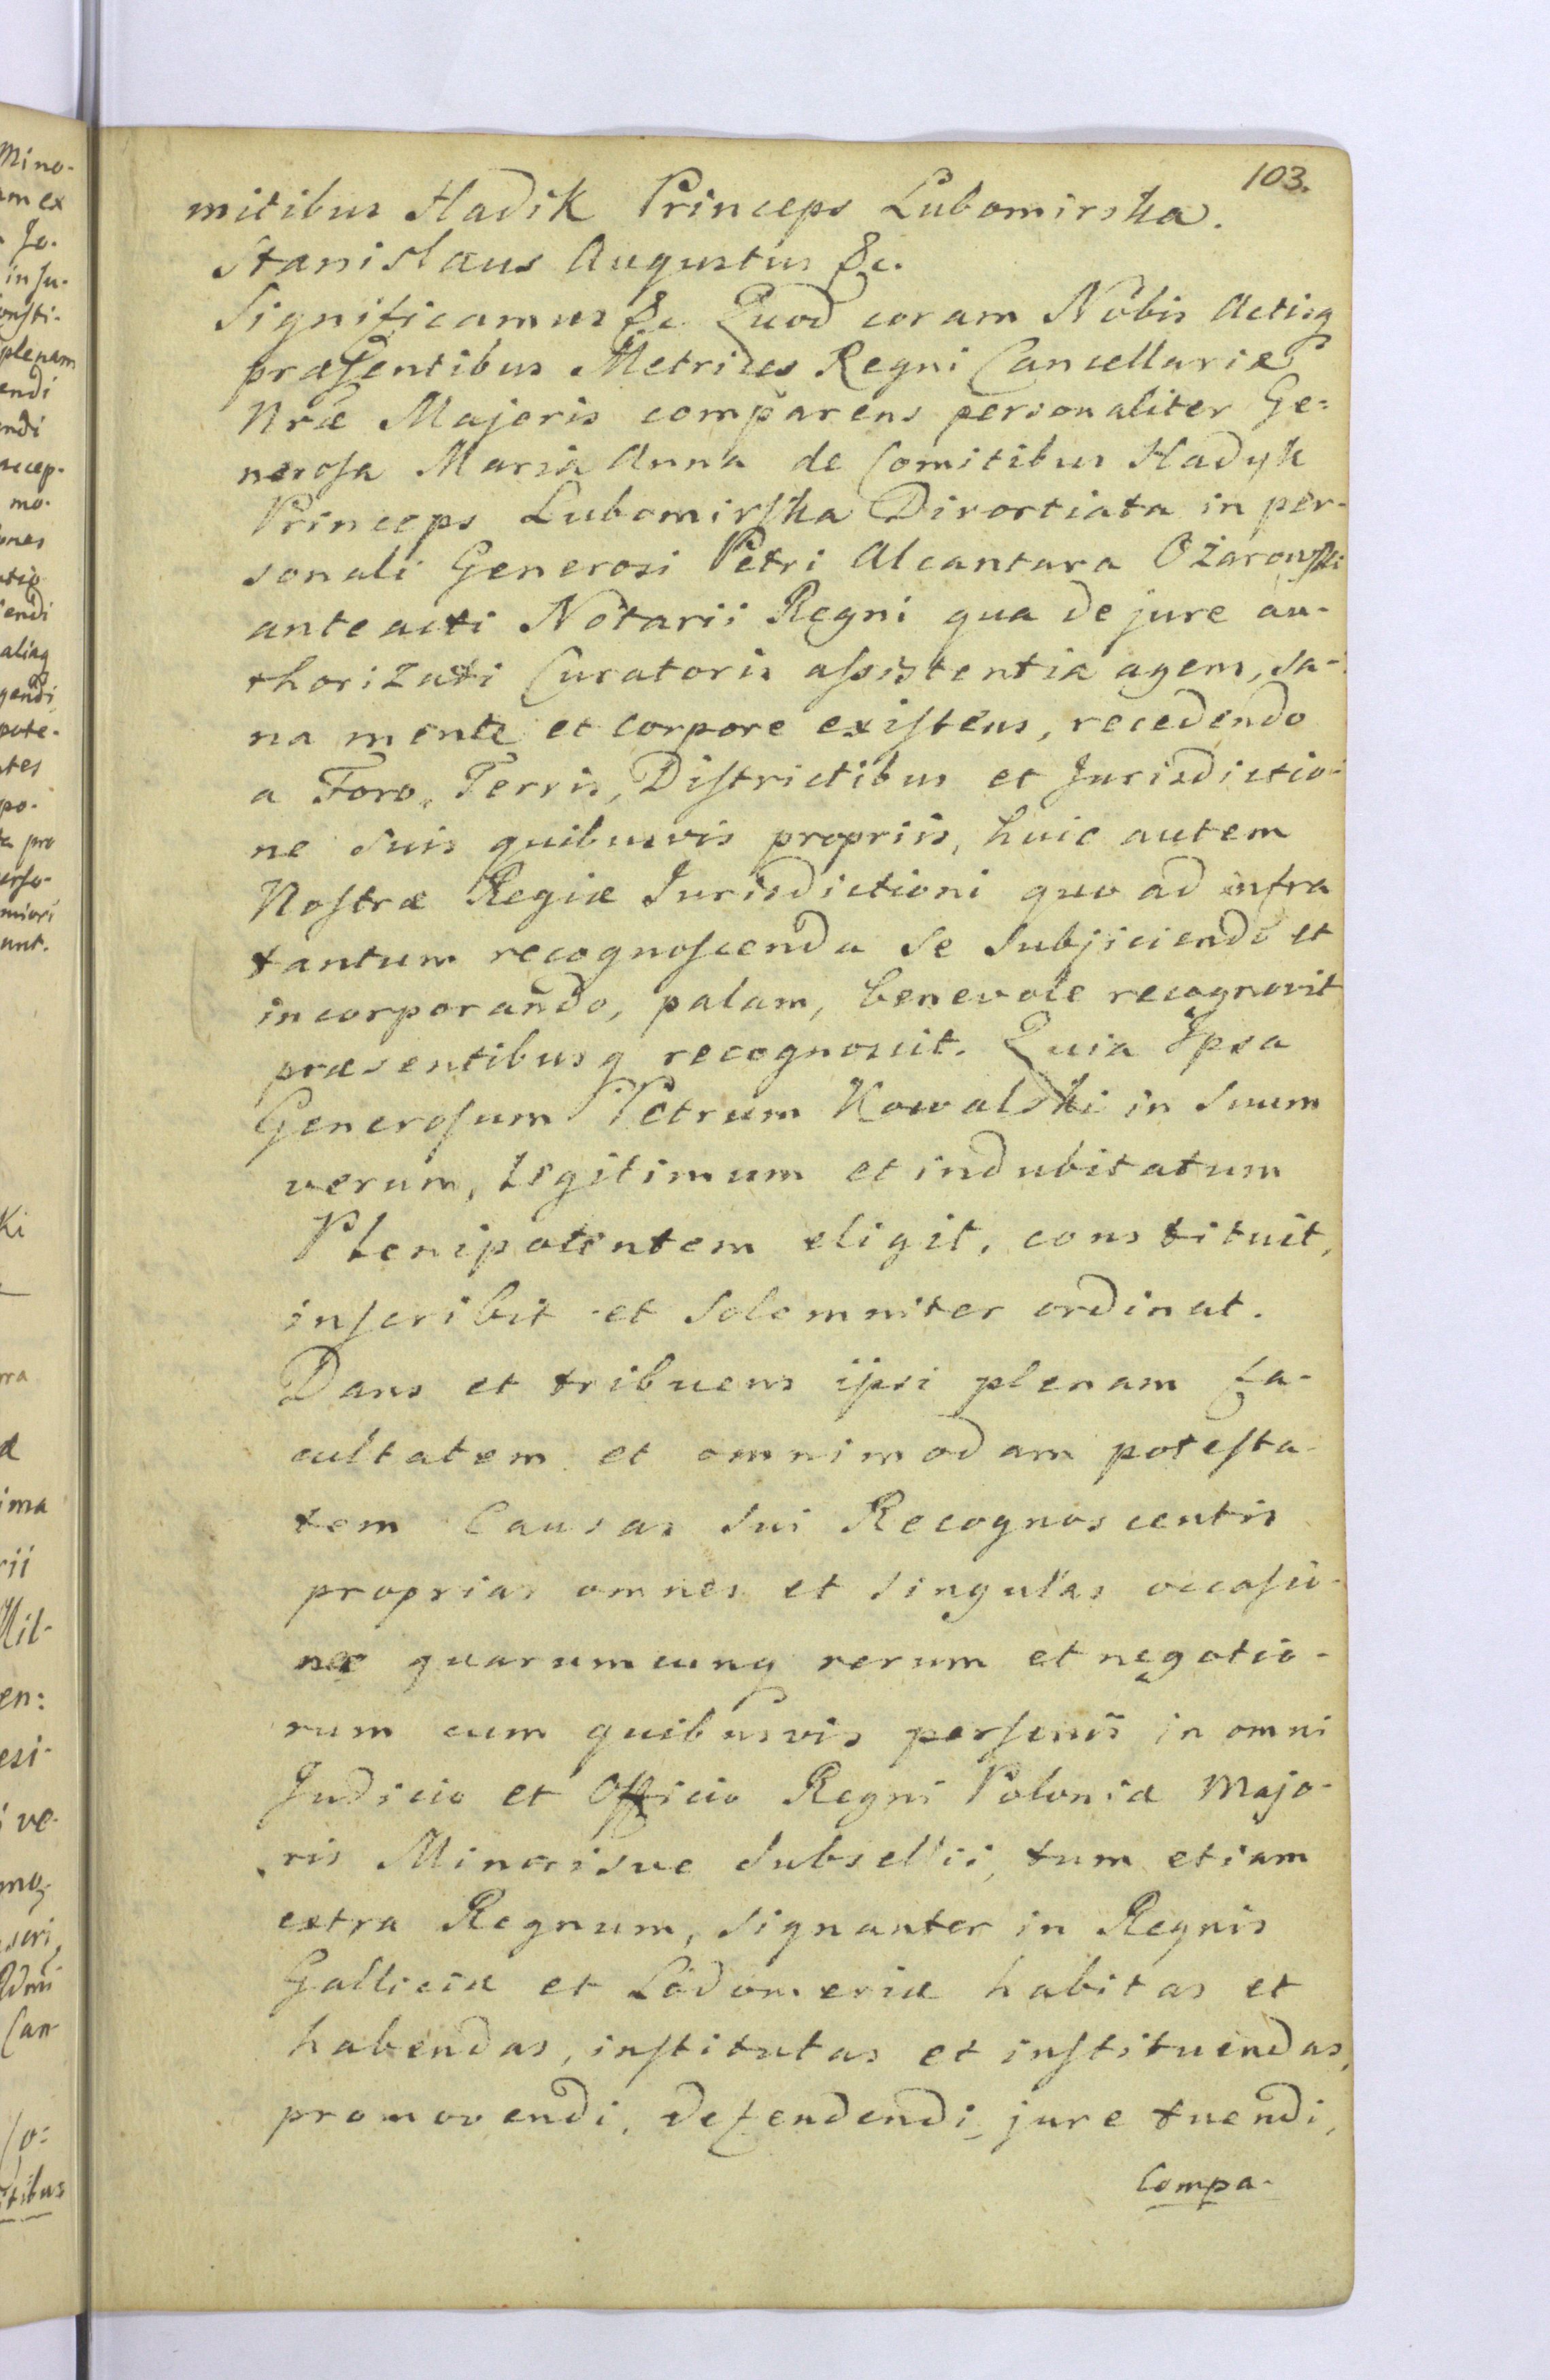 103.
mitibus Hadik Princeps Lubomirska.
Stanislaus Augustus &c.
Significamus &c Quod coram Nobis Actisq
præsentibus Metrices Regni Cancellariæ
Nræ Majoris comparens personaliter Ge=
nerosa Maria Anna de Comitibus Hadyk
Princeps Lubomirska Divortiata in per-
sonali Generosi Petri Alcantara Ożarowski
anteacti Notarii Regni qua de jure au-
thorizati Curatoris assistentia agens, sa-
na mente et corpore existens, recedendo
a Foro, Terris, Districtibus et Jurisdictio-
ne suis quibusvis propriis, huic autem
Nostræ Regiæ Jurisdictioni quo ad infra
tantum recognoscenda se subjiciendo et
incorporando, palam, benevole recognovit
præsentibusq recognoscit. Quia Ipsa
Generosum Petrum Kowalski in Suum
verum, legitimum et indubitatum
Plenipotentem eligit, constituit,
inscribit et solemniter ordinat.
Dans et tribuens ipsi plenam fa-
cultatem et omnimodam potesta-
tem Causas sui Recognoscentis
proprias omnes et singulas occasio-
ne quarumcunq rerum et negotio-
rum cum quibusvis personis in omni
Judicio et Officio Regni Poloniæ Majo-
ris Minorisve Subsellii, tum etiam
extra Regnum, signanter in Regnis
Galliciæ et Lodomeriæ habitas et
habendas, institutas et instituendas,
promovendi, defendendi, jure tuendi,
Compa-